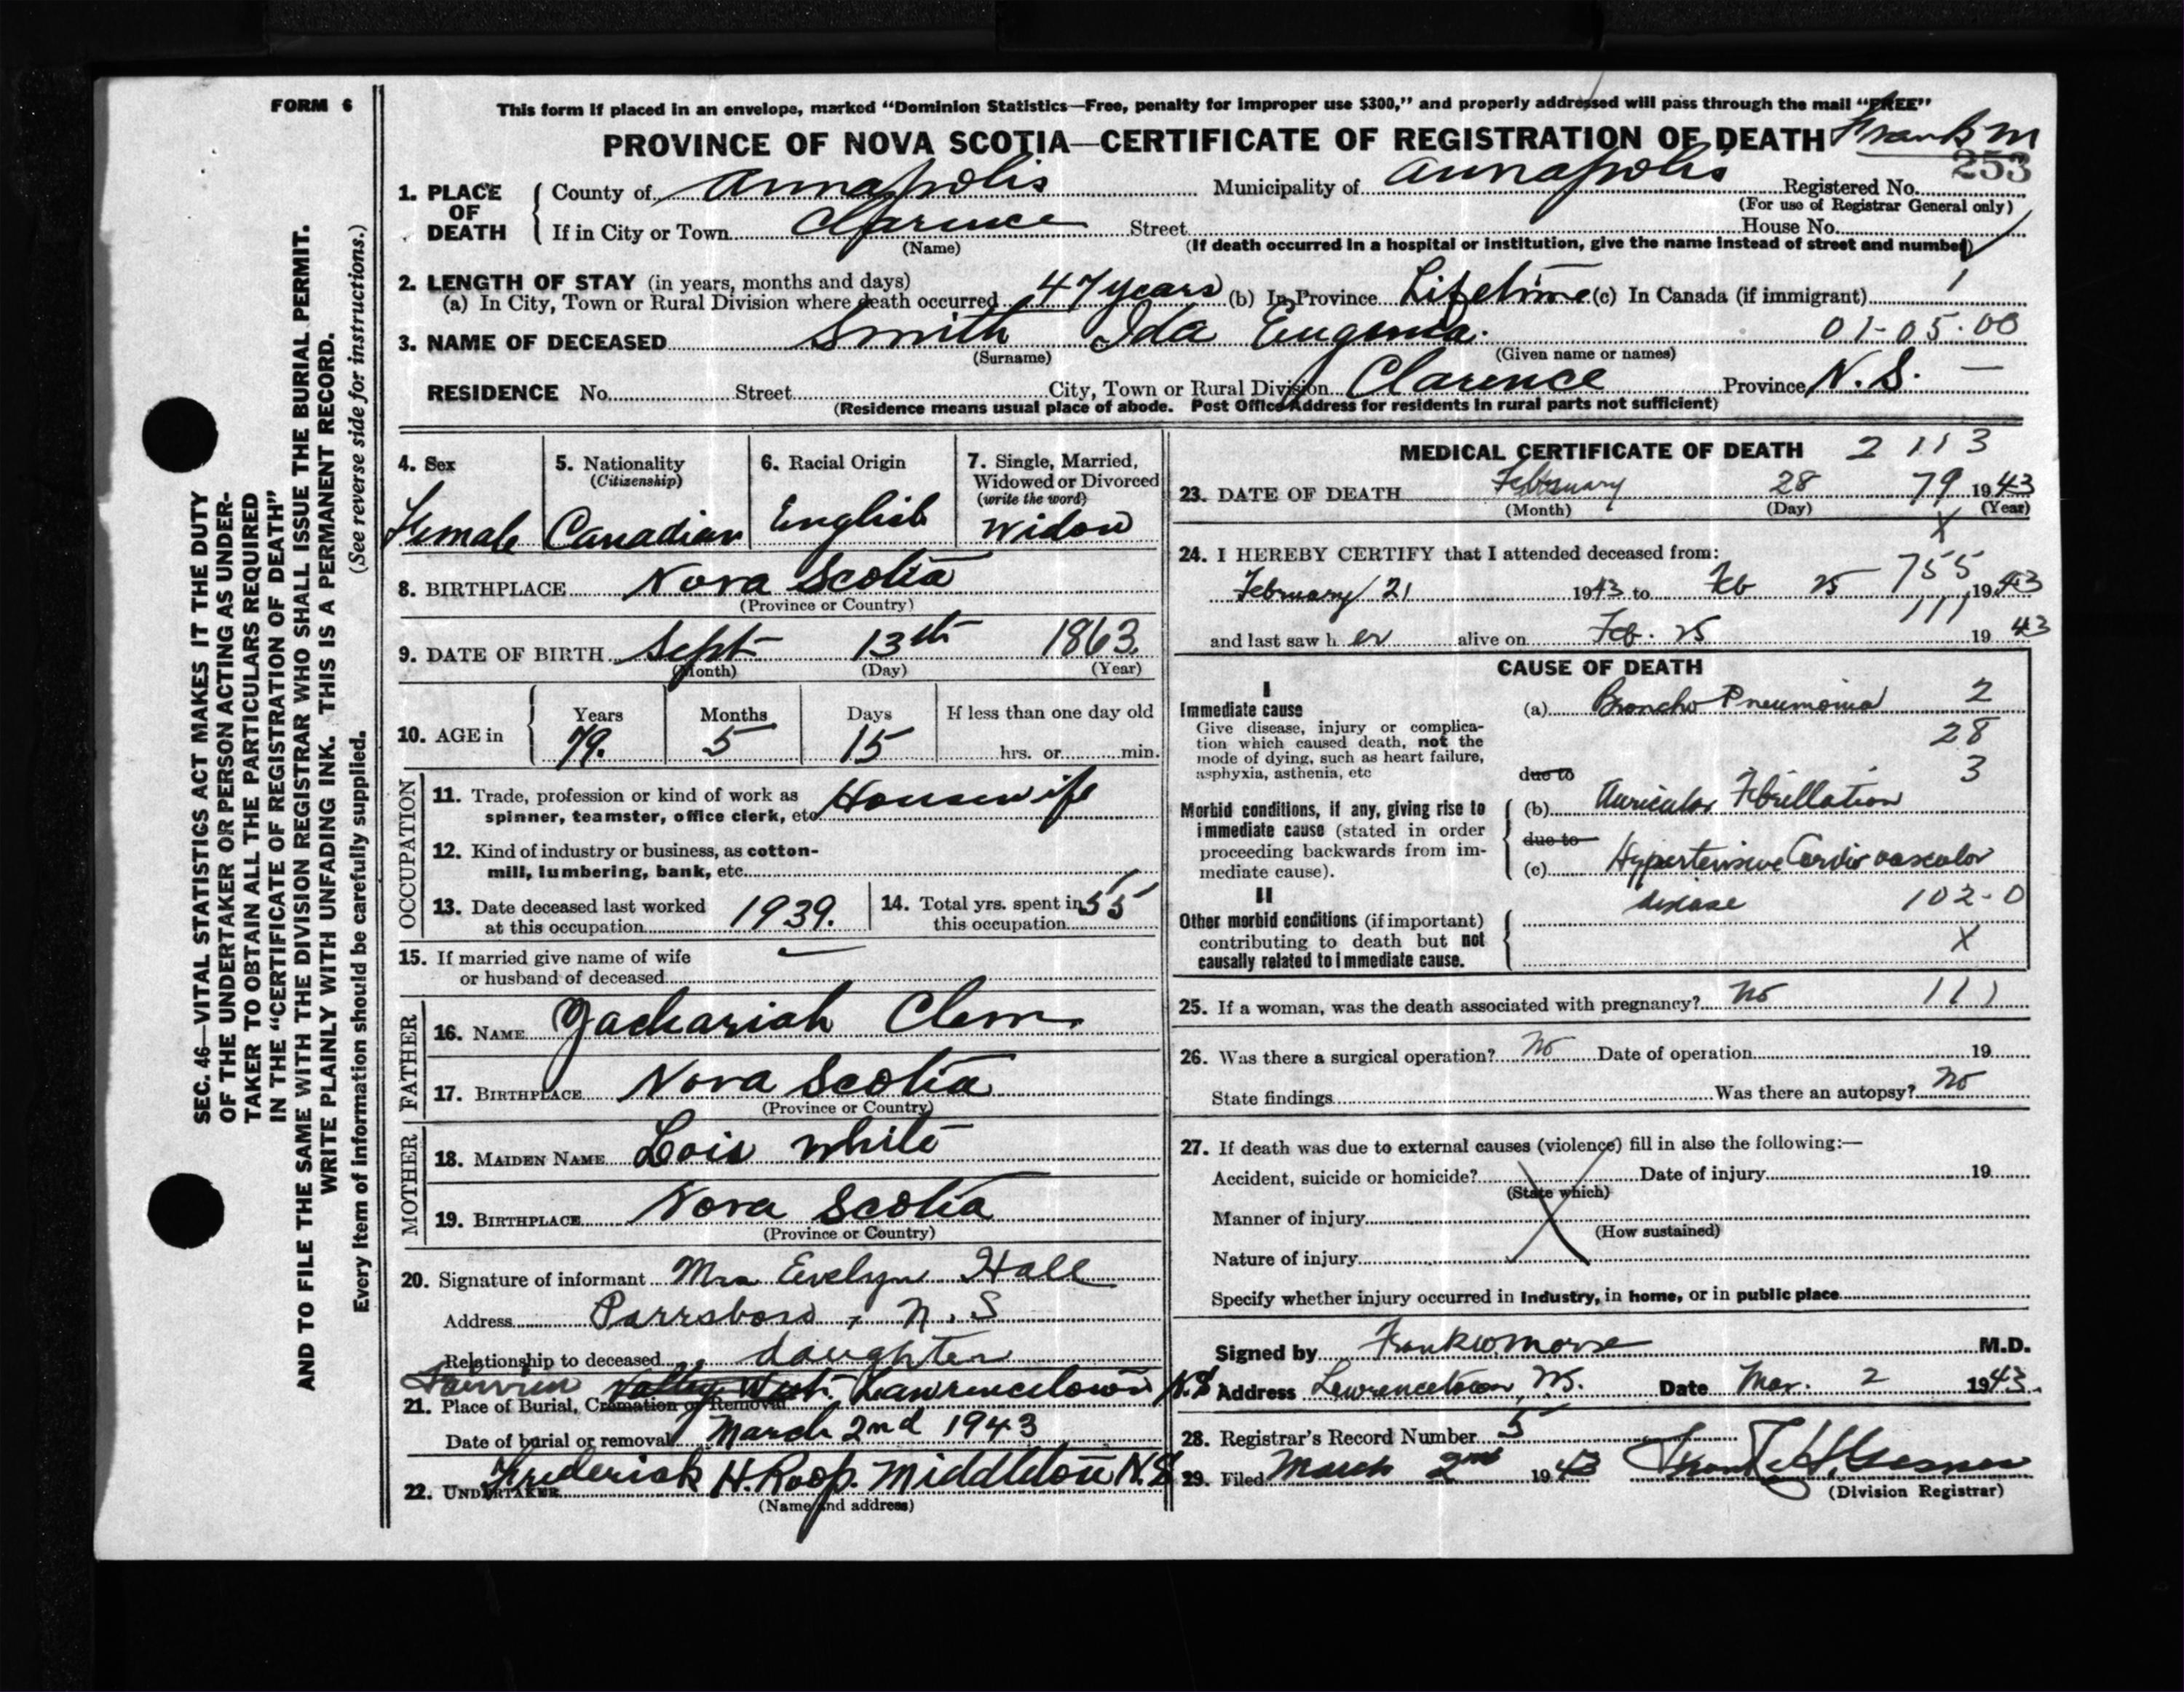 FORM 6
This form if placed in an envelope, marked “Dominion Statistics—Free, penalty for improper use $300,” and properly addressed will pass through the mail “FREE”
PROVINCE OF NOVA SCOTIA—CERTIFICATE OF REGISTRATION OF DEATH Frank M
253
1. PLACE OF DEATH County of Annapolis Municipality of Annapolis Registered No.
(For use of Registrar General only)
If in City or Town Clarence Street House No.
(Name) (If death occurred in a hospital or institution, give the name instead of street and number)
2. LENGTH OF STAY (in years, months and days)
(a) In City, Town or Rural Division where death occurred 47 years (b) In Province Lifetime (c) In Canada (if immigrant) 1
3. NAME OF DECEASED Smith Ida Eugenia. 01-05-00
(Surname) (Given name or names)
RESIDENCE No. Street City, Town or Rural Division Clarence Province N.S. —
(Residence means usual place of abode. Post Office Address for residents in rural parts not sufficient)
4. Sex
Female
5. Nationality
(Citizenship)
Canadian
6. Racial Origin
English
7. Single, Married,
Widowed or Divorced
(write the word)
Widow
8. BIRTHPLACE Nova Scotia
(Province or Country)
9. DATE OF BIRTH Sept 13th 1863.
(Month) (Day) (Year)
10. AGE in Years Months Days If less than one day old
79. 5 15 hrs. or min.
OCCUPATION
11. Trade, profession or kind of work as
spinner, teamster, office clerk, etc Housewife
12. Kind of industry or business, as cotton-
mill, lumbering, bank, etc.
13. Date deceased last worked
at this occupation 1939.
14. Total yrs. spent in
this occupation 55
15. If married give name of wife
or husband of deceased —
FATHER
16. NAME Zachariah Clem
17. BIRTHPLACE Nova Scotia
(Province or Country)
MOTHER
18. MAIDEN NAME Lois White
19. BIRTHPLACE Nova Scotia
(Province or Country)
20. Signature of informant Mrs Evelyn Hall
Address Parrsboro, N.S
Relationship to deceased daughter
Valley West. Lawrencetown N.S
21. Place of Burial, Cremation or Removal
Date of burial or removal March 2nd 1943
22. UNDERTAKER Frederick H. Roop. Middleton N.S
(Name and address)
MEDICAL CERTIFICATE OF DEATH 2 113
23. DATE OF DEATH February 28 79 1943
(Month) (Day) (Year)
X
24. I HEREBY CERTIFY that I attended deceased from:
755
February 21 1943 to Feb 25 1943
111
and last saw her alive on Feb. 25 1943
CAUSE OF DEATH
I
Immediate cause
Give disease, injury or complica-
tion which caused death, not the
mode of dying, such as heart failure,
asphyxia, asthenia, etc
(a) Broncho Pneumonia 2
28
due to 3
Morbid conditions, if any, giving rise to
immediate cause (stated in order
proceeding backwards from im-
mediate cause).
(b) Auricular Fibrillation
due to
(c) Hypertensive Cardio vascular
disease 102-0
II
Other morbid conditions (if important)
contributing to death but not
causally related to immediate cause.
X
25. If a woman, was the death associated with pregnancy? No 111
26. Was there a surgical operation? No Date of operation 19
State findings Was there an autopsy? No
27. If death was due to external causes (violence) fill in also the following:—
Accident, suicide or homicide? Date of injury 19
(State which)
Manner of injury
(How sustained)
Nature of injury
Specify whether injury occurred in Industry, in home, or in public place
Signed by Frank W Morse M.D.
Address Lawrencetown, N.S. Date Mar. 2 1943.
28. Registrar's Record Number 5
29. Filed March 2nd 1943 Frank H. Gesner
(Division Registrar)
SEC. 46—VITAL STATISTICS ACT MAKES IT THE DUTY
OF THE UNDERTAKER OR PERSON ACTING AS UNDER-
TAKER TO OBTAIN ALL THE PARTICULARS REQUIRED
IN THE “CERTIFICATE OF REGISTRATION OF DEATH”
AND TO FILE THE SAME WITH THE DIVISION REGISTRAR WHO SHALL ISSUE THE BURIAL PERMIT.
WRITE PLAINLY WITH UNFADING INK. THIS IS A PERMANENT RECORD.
Every item of information should be carefully supplied. (See reverse side for instructions.)